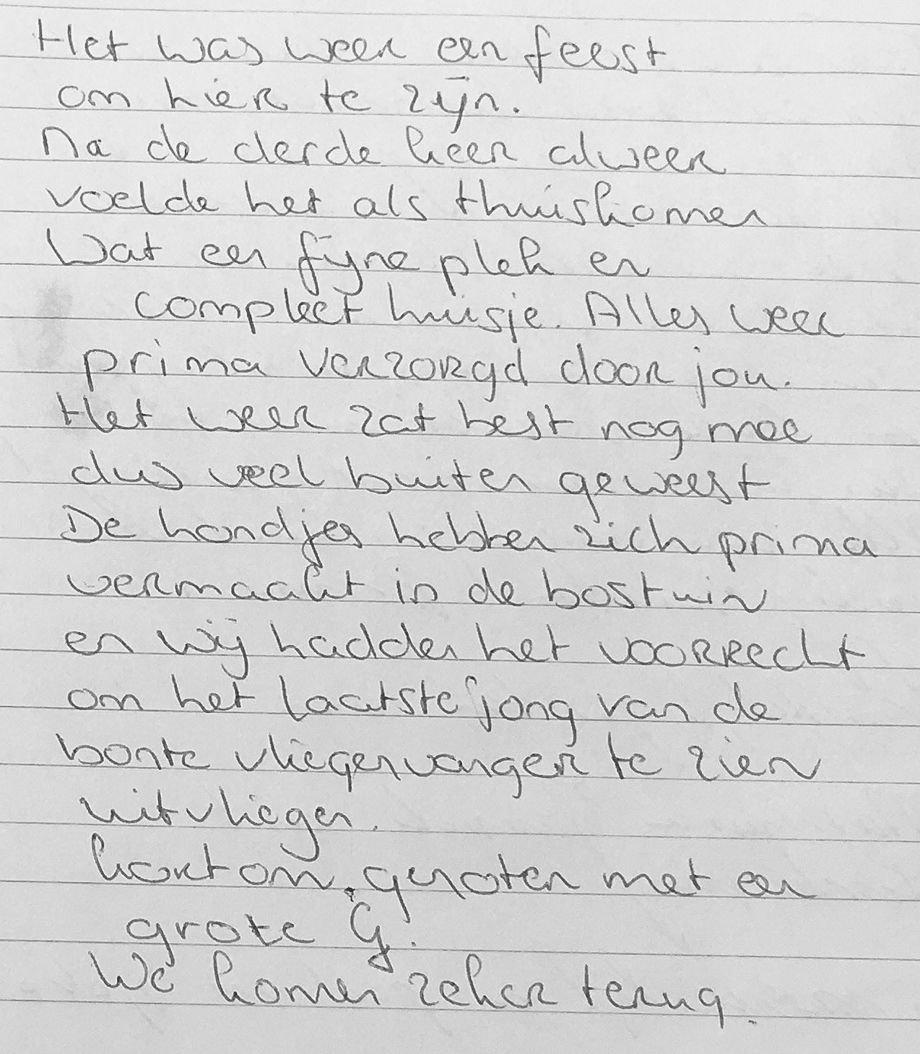 Het was weer een feest
om hier te zijn.
Na de derde keer alweer
voelde het als thuiskomen
Wat een fijne plek en
compleet huisje. Alles weer
prima verzorgd door jou.
Het weer zat best nog mee
dus veel buiten geweest
De hondjes hebben zich prima
vermaakt in de bostuin
en wij hadden het voorrecht
om het laatste jong van de
bonte vliegenvanger te zien
uitvliegen.
kortom, genoten met een
grote G.
We komen zeker terug.